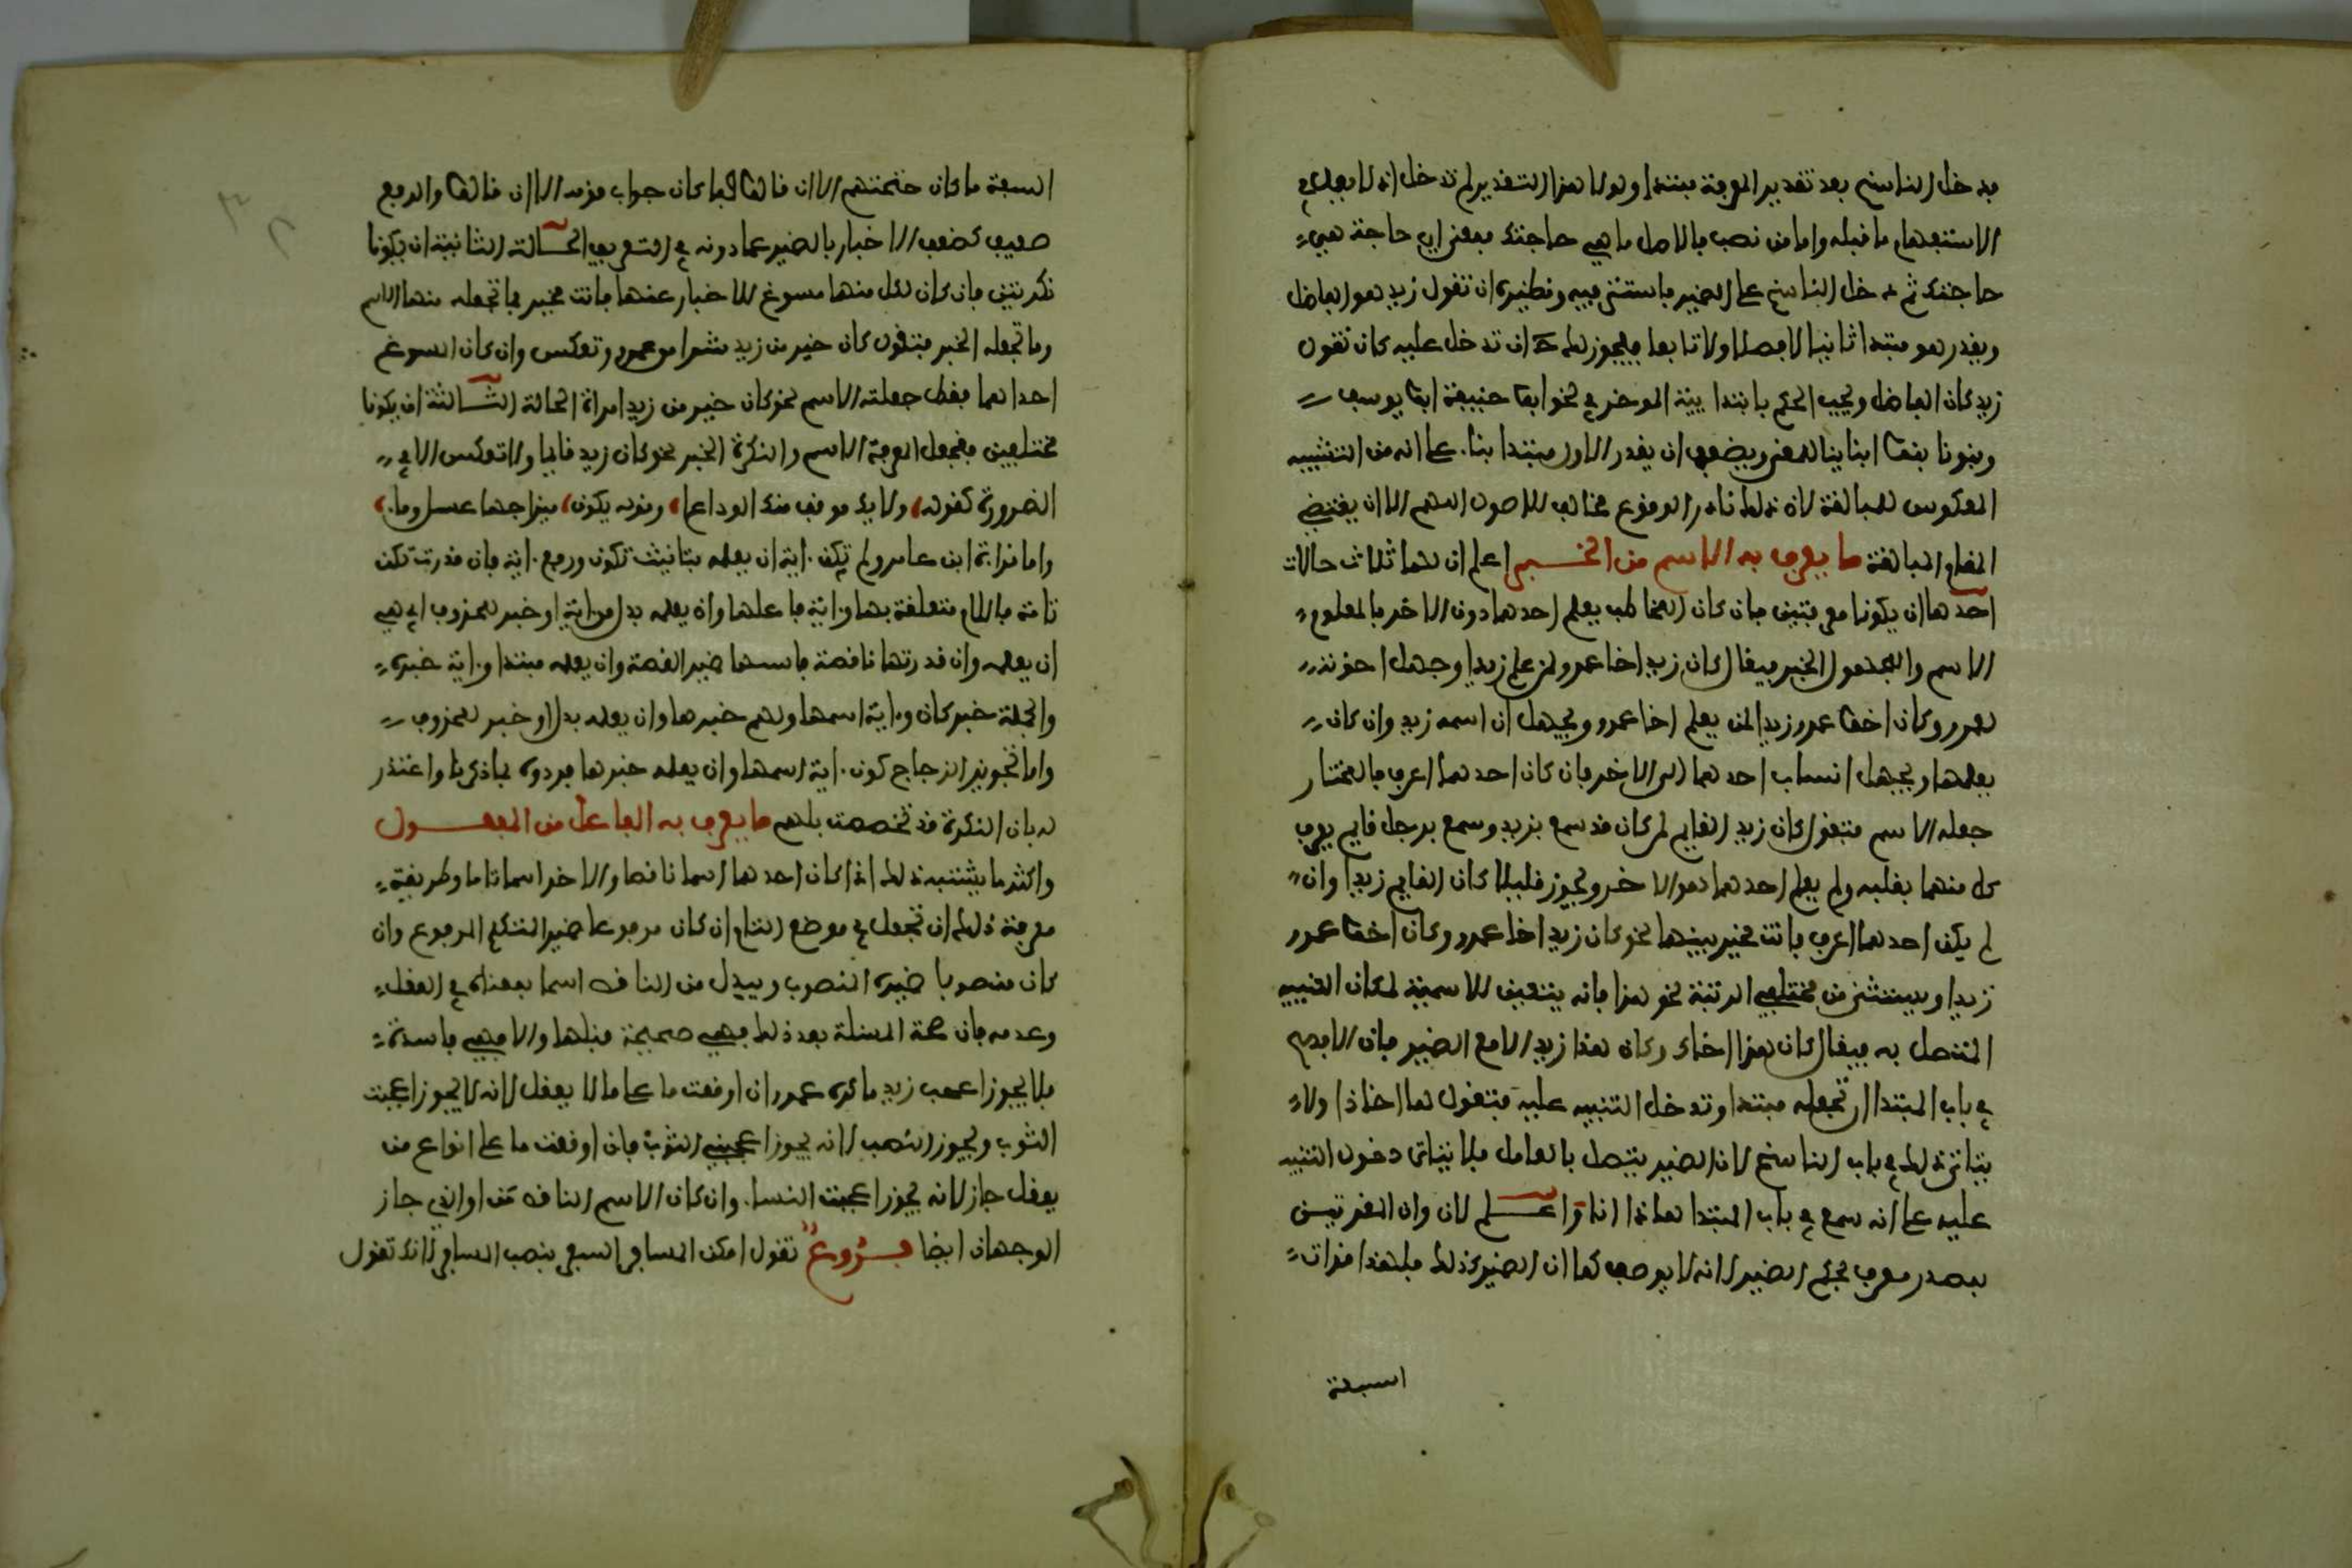 فدخل الناسخ بعد تقدير المعرفة مبتدا ولولا هذا التقدير لم تدخل اذ لا يعمل في
الاستفهام ما قبله واما من نصب فالاصل ما هي حاجتك بمعنى اي حاجة هي
حاجتك ثم دخل الناسخ على الضمير فاستتر فيه ونظيره ان تقول زيد هو الفاضل
ويقدر هو مبتدا ثانيا لا فصلا ولا تابعا فيجوز لك ح ان تدخل عليه كان تقول
زيد كان الفاضل ويجب الحكم بابتدايية الموخر في نحو ابو حنيفة ابو يوسف
وبنونا بنو ابناينا للمعنى ويضعف ان يقدر الاول مبتدا بناء على انه من التشبيه
المعكوس للمبالغة لان ذلك نادر الوقوع مخالف للاصول اللهم الا ان يقتضي
المقام المبالغة ما يعرف به الاسم من الخبر اعلم ان لهما ثلاث حالات
احدها ان يكونا معرفتين فان كان المخاطب يعلم احدهما دون الاخر فالمعلوم
الاسم والمجهول الخبر فيقال كان زيد اخا عمرو لمن علم زيدا وجهل اخوته
لعمرو وكان اخو عمرو زيدا لمن يعلم اخا عمرو ويجهل ان اسمه زيد وان كان
يعلمها ويجهل انتساب احدهما الى الاخر فان كان احدهما اعرف فالمختار
جعله الاسم فتقول كان زيد القايم لمن كان قد سمع بزيد وسمع برجل قايم يعرف
كل منهما بقلبه ولم يعلم احدهما هو الاخر ويجوز قليلا كان القايم زيدا وان
لم يكن احدهما اعرف فانت مخير بينهما نحو كان زيد اخا عمرو وكان اخو عمرو
زيدا ويستثنى من مختلفي الرتبة نحو هذا فانه يتعين للاسمية لمكان التنبيه
المتصل به فيقال كان هذا اخاك وكان هذا زيدا الا مع الضمير فان الافصح
في باب المبتدا ان تجعله مبتدا وتدخل التنبيه عليه فتقول ها انا ذا ولا
يتاتى ذلك في باب الناسخ لان الضمير يتصل بالعامل فلا يتاتى دخول التنبيه
عليه على انه سمع في باب المبتدا هاذا انا واعلم لان وان المقدرتين
بمصدر معرف بحكم الضمير لانه لا يوصف كما ان الضمير كذلك فلهذا قرات
السبعة
السبعة ما كان حجتهم الا ان قالوا فما كان جواب قومه الا ان قالوا والرفع
ضعيف كضعف الاخبار بالضمير عما دونه في التعريف الحالة الثانية ان يكونا
نكرتين فان كان لكل منهما مسوغ للاخبار عنها فانت مخير فيما تجعله منهما الاسم
وما تجعله الخبر فتقول كان خير من زيد شرا من عمرو وتعكس وان كان المسوغ
احداهما فقط جعلتها الاسم نحو كان خير من زيد امراة الحالة الثالثة ان يكونا
مختلفين فتجعل المعرفة الاسم والنكرة الخبر نحو كان زيد قايما ولا تعكس الا في
الضرورة كقوله ولا يك موقف منك الوداعا وقوله يكون مزاجها عسل وماء
واما قراءة ابن عامر ولم تكن اية ان يعلمه بتانيث تكون ورفع اية فان قدرت تكن
تامة فاللام متعلقة بها واية فاعلها وان يعلمه بدل من اية او خبر لمحذوف اي هي
ان يعلمه وان قدرتها ناقصة فاسمها ضمير القصة وان يعلمه مبتدا واية خبره
والجملة خبر كان واية اسمها ولهم خبرها وان يعلمه بدل او خبر لمحذوف
واما تجويز الزجاج كون اية اسمها وان يعلمه خبرها فردوه لما ذكرنا واعتذر
له بان النكرة قد تخصصت بلهم ما يعرف به الفاعل من المفعول
واكثر ما يشتبه ذلك اذا كان احدهما اسما ناقصا والاخر اسما تاما وطريقة
معرفة ذلك ان تجعل في موضع التام ان كان مرفوعا ضمير المتكلم المرفوع وان
كان منصوبا ضميره المنصوب ويبدل من الناقص اسما بمعناه في العقل
وعدمه فان صحة المسئلة بعد ذلك فهي صحيحة قبلها والا فهي فاسدة
فلا يجوز اعجب زيد ما كره عمرو ان اوقعت ما على ما لا يعقل لانه لا يجوز اعجبت
الثوب ويجوز النصب لانه يجوز اعجبني الثوب فان اوقعت ما على انواع من
يعقل جاز لانه يجوز اعجبت النساء وان كان الاسم الناقص من او الذي جاز
الوجهان ايضا فروع تقول امكن المسافر السفر بنصب المسافر لانك تقول